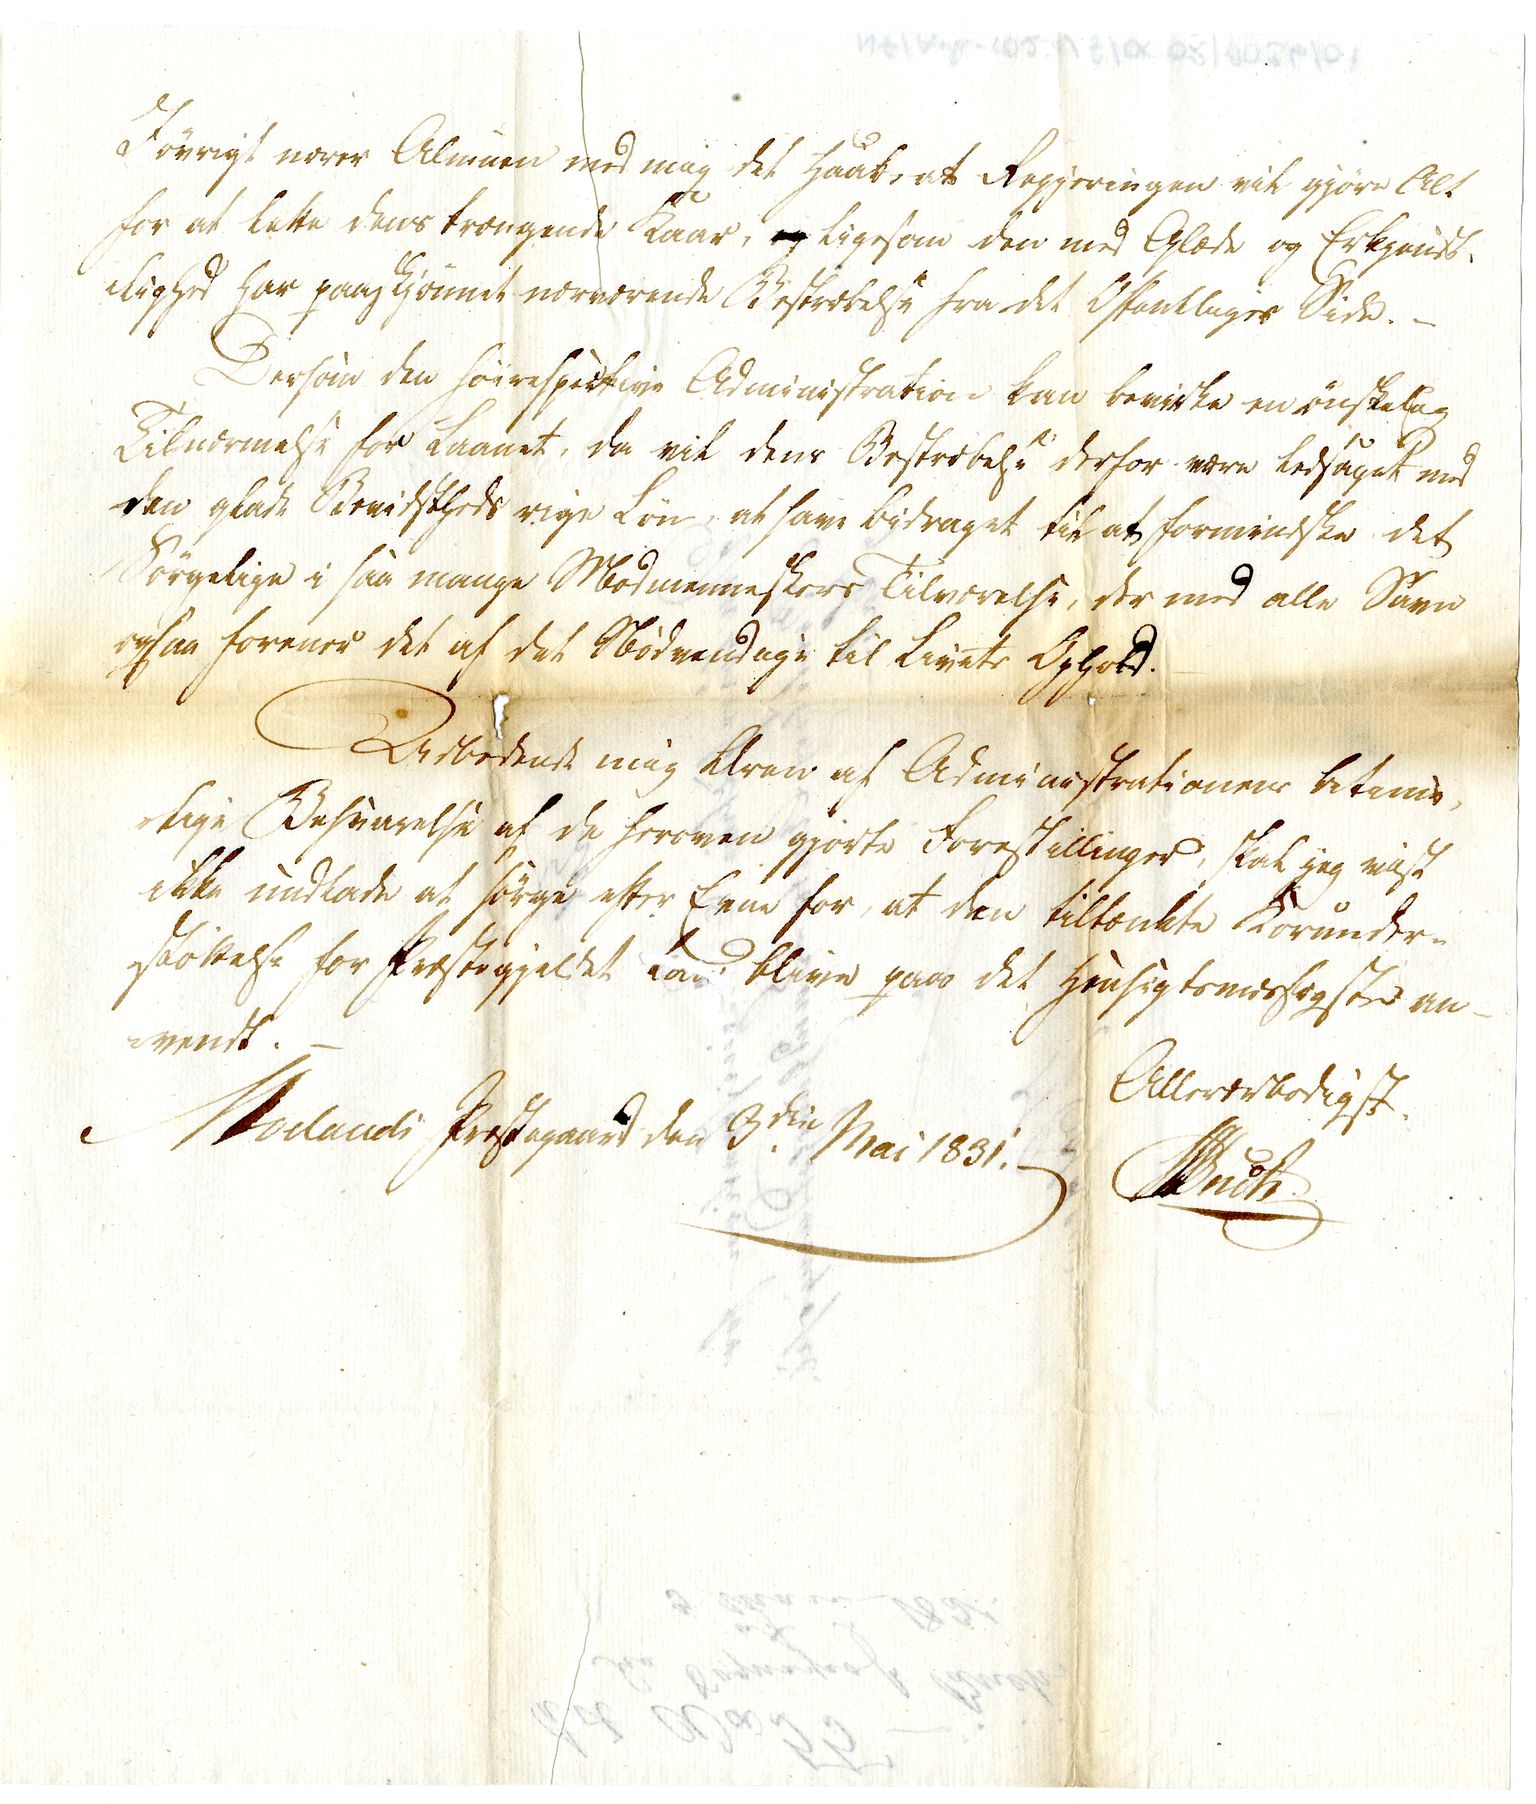 Iøvrigt nærer Almuen med mig det Haab, at Regjeringen vil gjøre Alt
for at lette dens trængende Kaar, ligesom den med Glæde og Erkjendt-
lighed har paaskjønnet nærværende Bestræbelse fra det Offentliges Side. –
Dersom den høirespective Administration kan bevirke en ønskelig
Tilnærmelse for Laanet, da vil dens Bestræbelse derfor være ledsaget med
den glade Bevidstheds rige Løn, at have bidraget til at formindske det
Sørgelige i saa mange Medmenneskers Tilværelse, der med alle Savn
ogsaa forener det af det Nødvendige til Livets Ophold.
Udbedende mig Æren af Administrationens
Besvarelse af de heroven gjorte Forestillinger, skal jeg vist
ikke undlade at sørge efter Evne for, at den tiltænkte Kornunder-
støttelse for Præstegjeldet kan blive paa det Hensigtsmæssigste an-
vendt. –
Allerærbødigst.
Moelands Præstegaard den 3die Mai 1831.
Buch